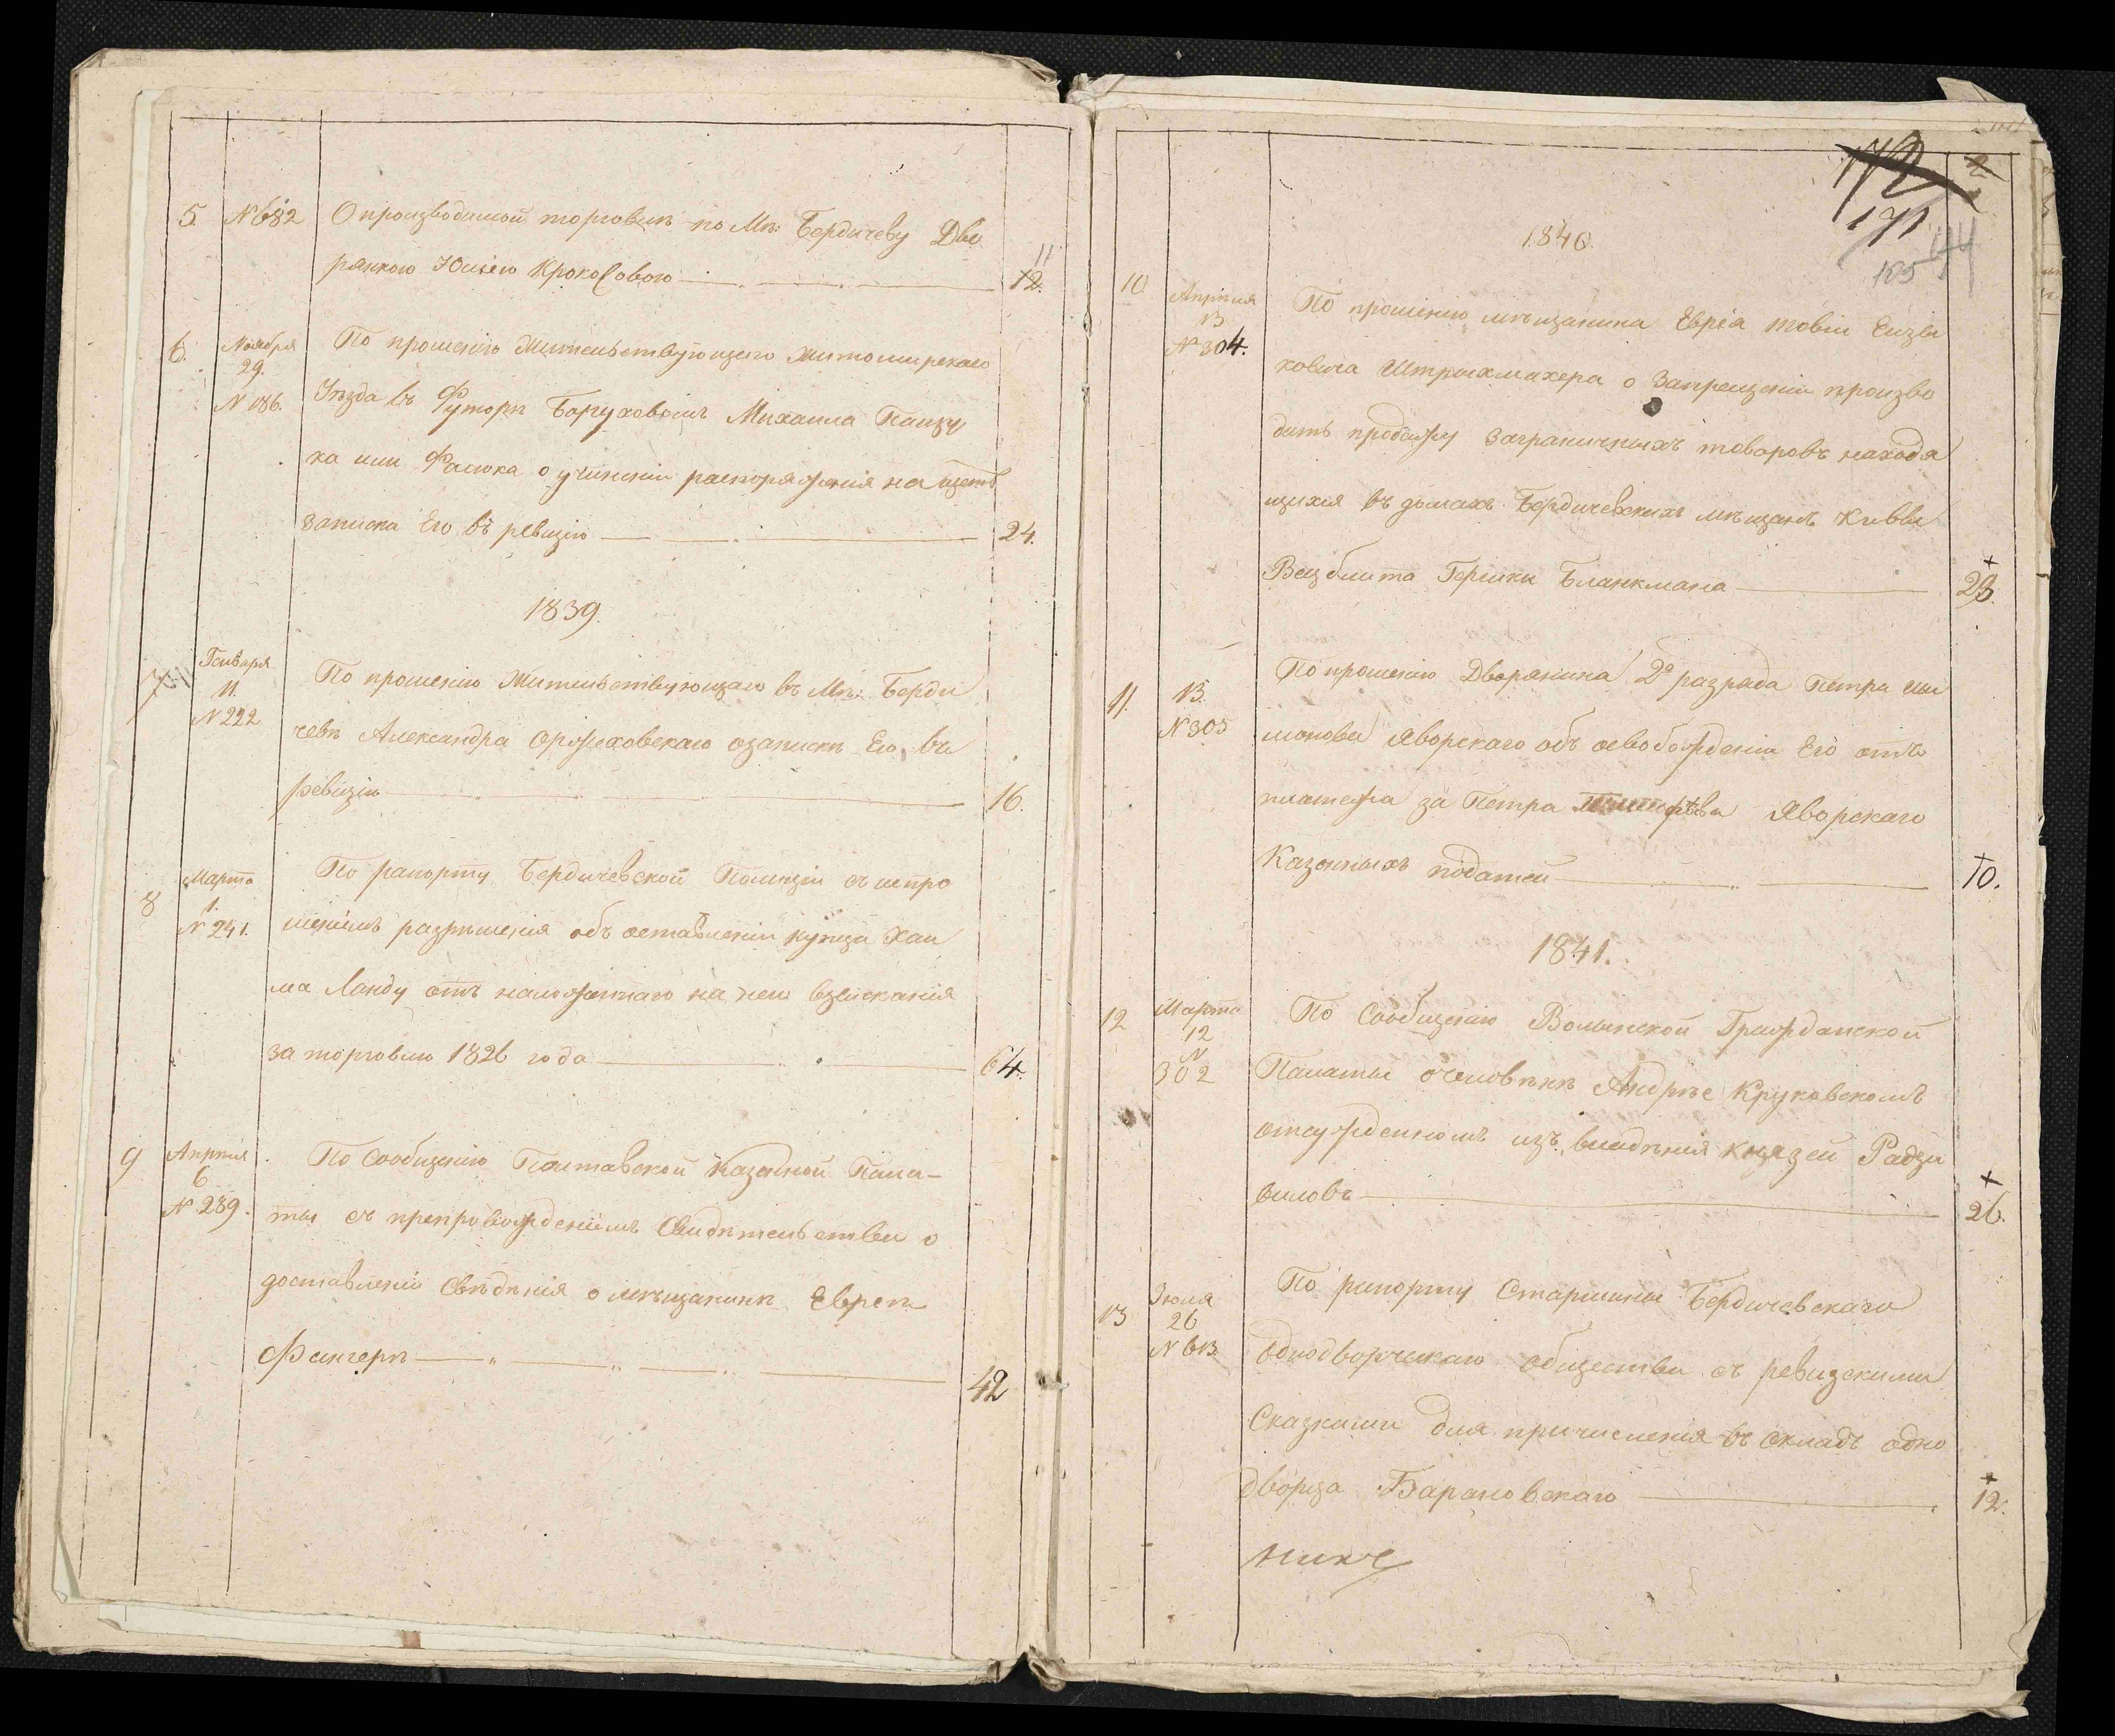 5. N 682 О производимой торговлѣ по Мѣ: Бердичеву Дво
рянкою Юлiею Крокосовою 11
12.
6. Ноября
29.
N 186.
По прошенiю Жительствующаго Житомирскаго
Уѣзда въ Футорѣ Баруховомъ Михаила Панщу
ка или Фалюка о учиненiи распоряженiя на щетъ
записка Его въ ревизiю 24.
1839.
7. Генваря
11.
N 222
По прошенiю Жительствующаго въ Мѣ: Берди
чевѣ Александра Оржеховскаго о запискѣ Его въ
ревизiю 16.
8 Марта
1.
N 241.
По рапорту Бердичевской Полицiи съ испро
шенiемъ разрѣшенiя объ оставленiи купца Хаи
ма Ланду отъ наложеннаго на него взысканiя
за торговлю 1826 года 64.
9 Апрѣля
6
N 289.
По сообщенiю Полтавской Казенной Пала-
ты съ препровожденiемъ Свидѣтельства о
доставленiи свѣдѣнiя о мѣщанинѣ Евреѣ
Фингерѣ 42
172
2
171
185
1840.
10. Апрѣля
13
N 304.
По прошенiю мѣщанина Еврея Товiи Ейзи
ковича Штрыхмахера о запрещенiи произво
дить продажу заграничныхъ товаровъ находя
щихся въ домахъ Бердичевскихъ мѣщанъ Кивы
Вецблита Гершки Бланкмана 23.
11. 13.
N 305
По прошенiю Дворянина 2го разряда Петра Ши
монова Яворскаго объ освобожденiи Его отъ
платежа за Петра Яворскаго
Казенныхъ податей 10.
1841.
12 Марта
12
N
302
По сообщенiю Волынской Гражданской
Палаты о человѣкѣ Андрѣе Круковскомъ
отсужденномъ изъ владѣнiя Князей Радзи
виловъ 26.
13 Iюля
26
N 613
По рапорту Старшины Бердичевскаго
Однодворческаго Общества съ ревизскими
Сказками для причисленiя въ окладъ одно
дворца Барановскаго 12.